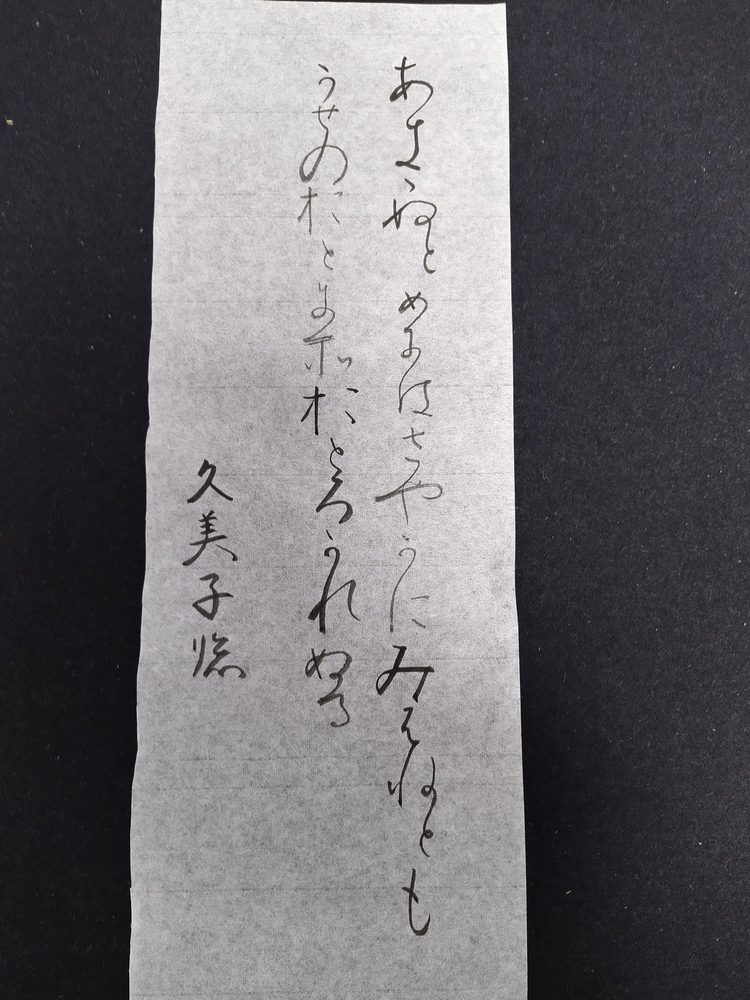 あきゝぬとめにはさやかにみえねとも
かせのおとにそおとろかれぬる
久美子臨